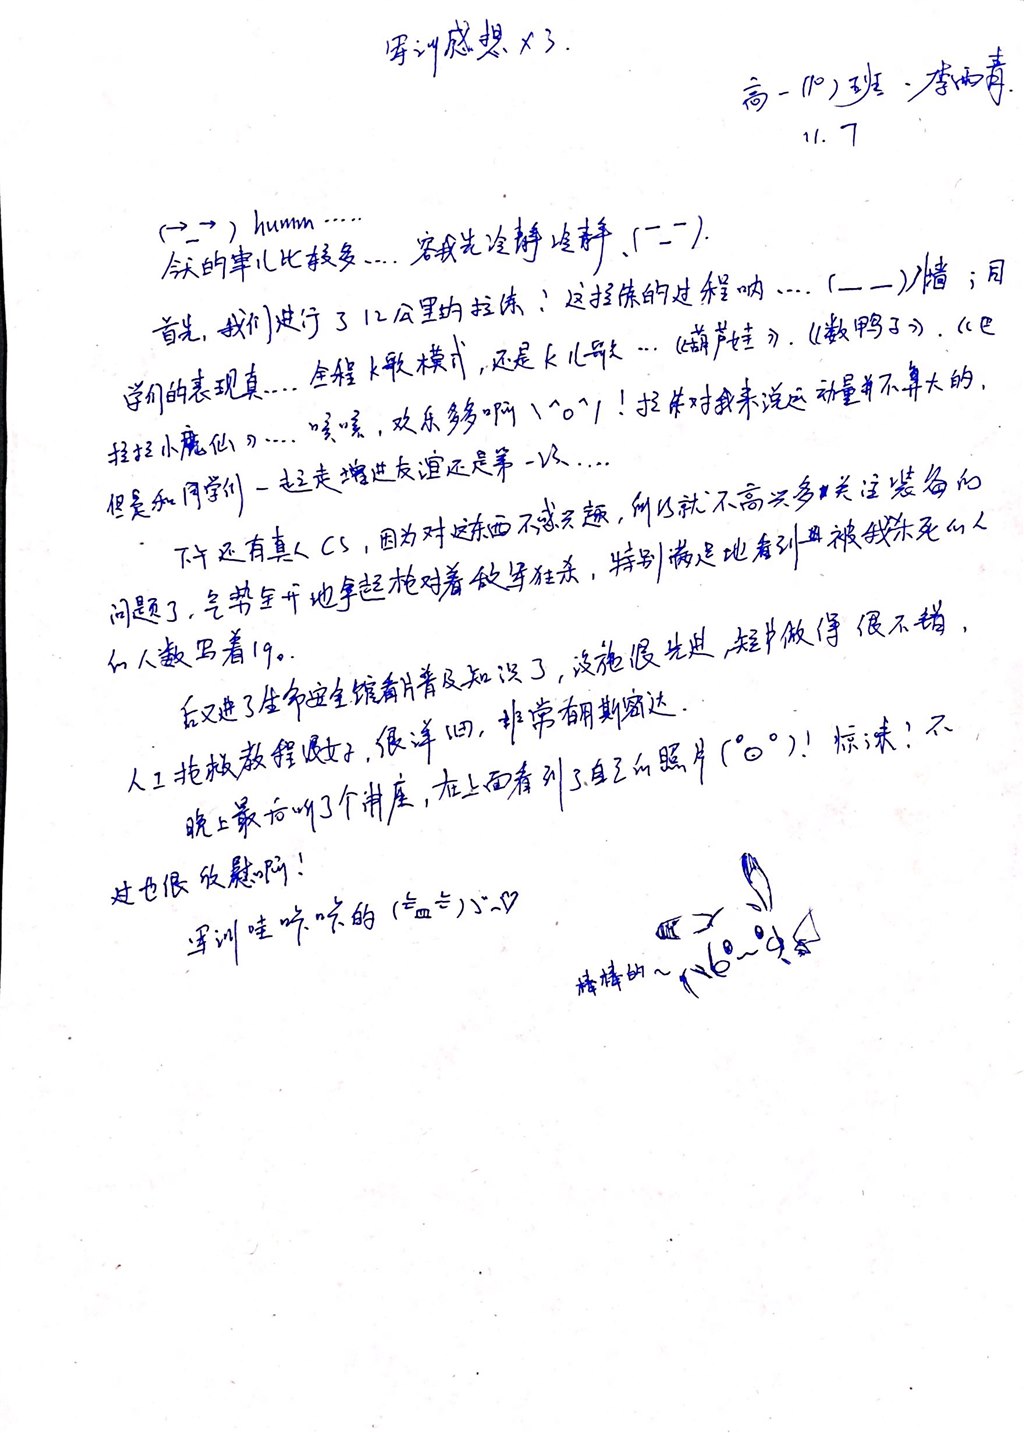 军训感想×3.
高一(10)班·李雨青.
11.7
(→_→) humm……
今天的事儿比较多…. 容我先冷静冷静、(一_一).
首先, 我们进行了12公里的拉练! 这拉练的过程呐…. (— —)墙; 同
学们的表现真…. 全程K歌模式, 还是K儿歌…《葫芦娃》.《数鸭子》.《巴
拉拉小魔仙》…. 咳咳, 欢乐多多啊 \^o^/! 拉练对我来说运动量并不算大的.
但是和同学们一起走增进友谊还是第一次….
下午还有真人CS, 因为对这东西不感兴趣, 所以就不高兴多关注装备的
问题了, 气势全开地拿起枪对着敌军狂杀, 特别满足地看到被我杀死的人
的人数写着19。
后又进了生命安全馆看片普及知识了, 设施很先进, 短片做得很不错,
人工抢救教程很好, 很详细, 非常有用斯密达.
晚上最后听了个讲座, 在上面看到了自己的照片(°⊙°)! 惊悚! 不
过也很欣慰啊!
军训哇咔咔的
棒棒的~